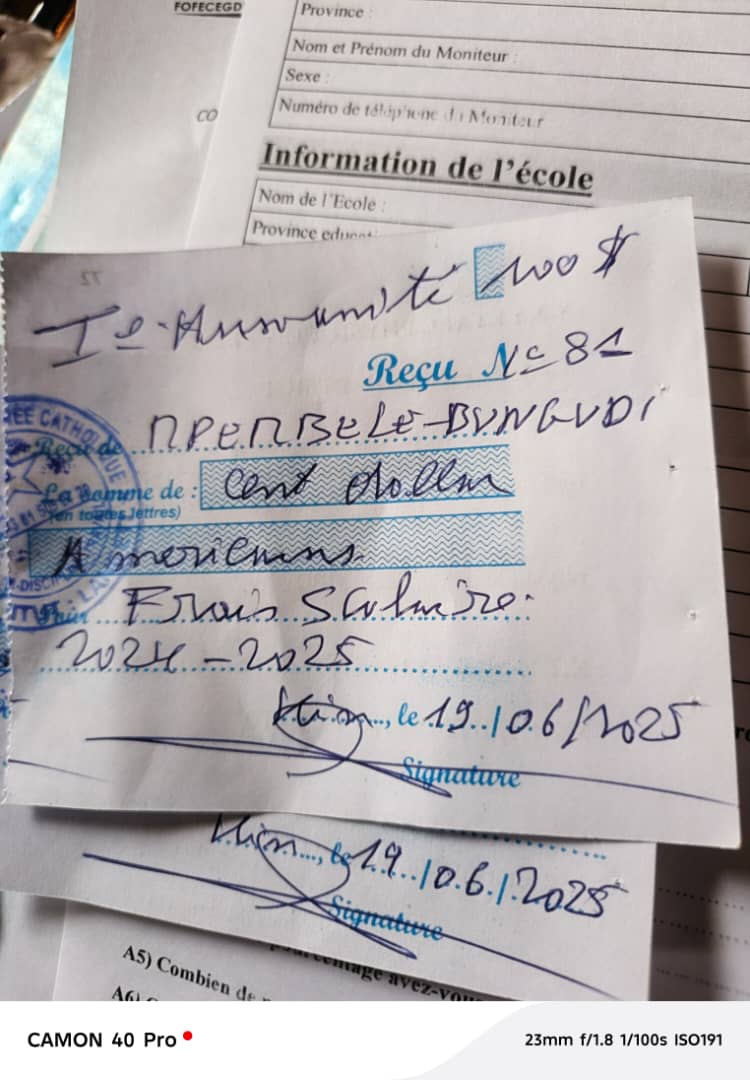 FOFECEGD
Province :
Nom et Prénom du Moniteur :
Sexe :
Numéro de téléphone du Moniteur
CO
Information de l'école
Nom de l'Ecole :
Province
Ie Humanité 100 $
Reçu Nº 81
Reçu de
La Somme de : Cent dollar
(en toutes lettres)
Americains
Frais Scolaire
2024 - 2025
Kin..., le 19../06/2025
Signature
Kin..., le 19../06./2025
Signature
A5) Combien de
avez-vou
CAMON 40 Pro
23mm f/1.8 1/100s ISO191